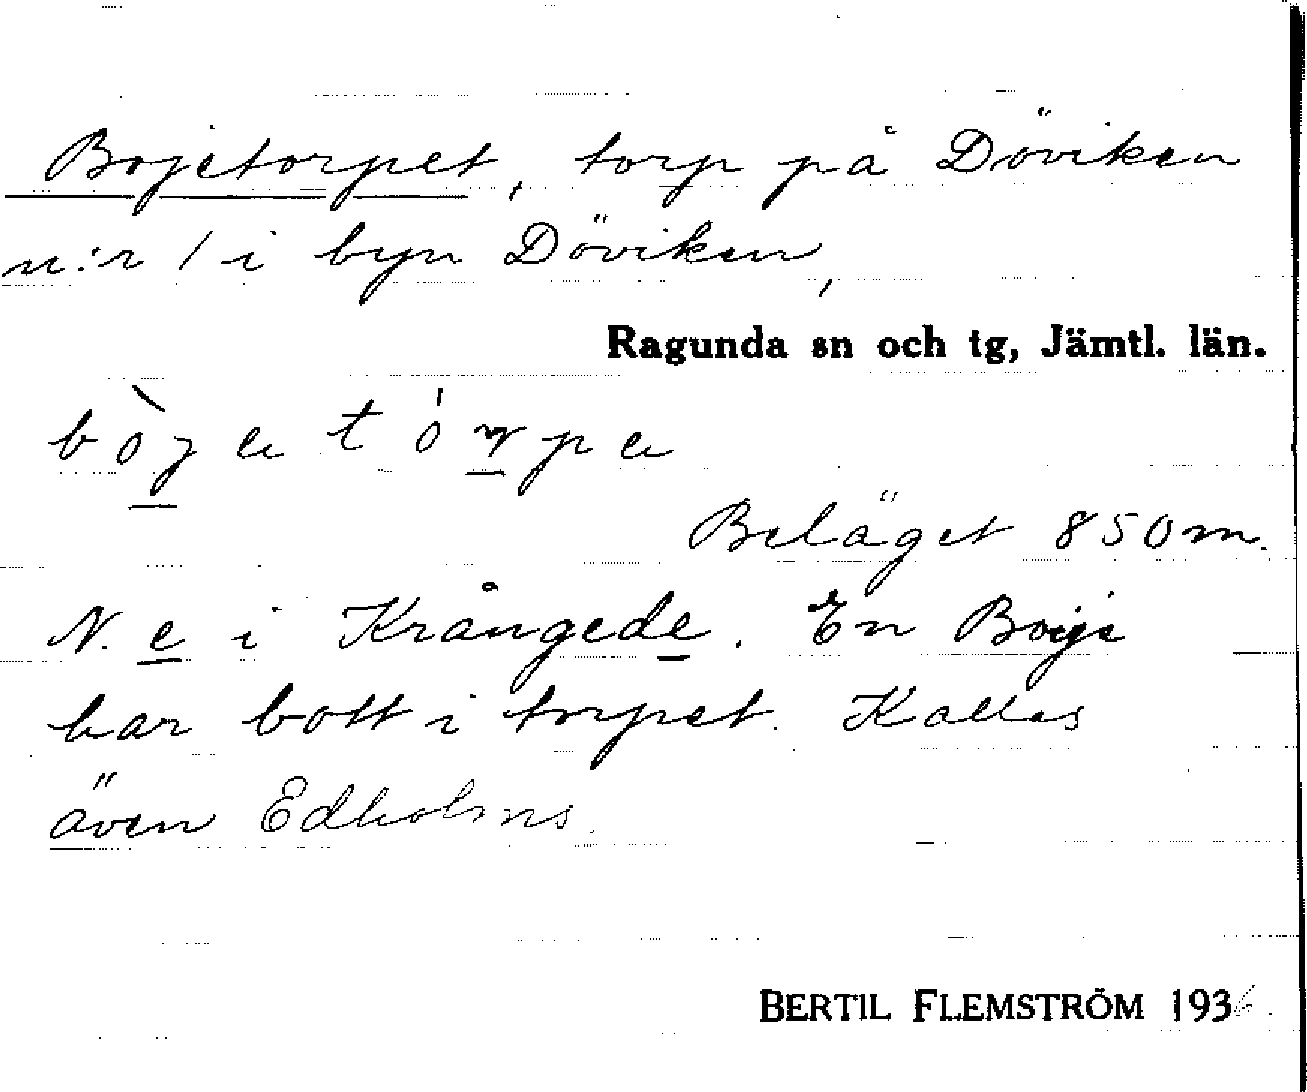 Bojetorpet, torp på Döviken
n:r 1 i byn Döviken,
Ragunda sn och tg, Jämtl. län.
Beläget 850 m.
N. e i Krångede. En Boije
har bott i torpet. Kallas
även Edholms.
BERTIL FLEMSTRÖM 1936.